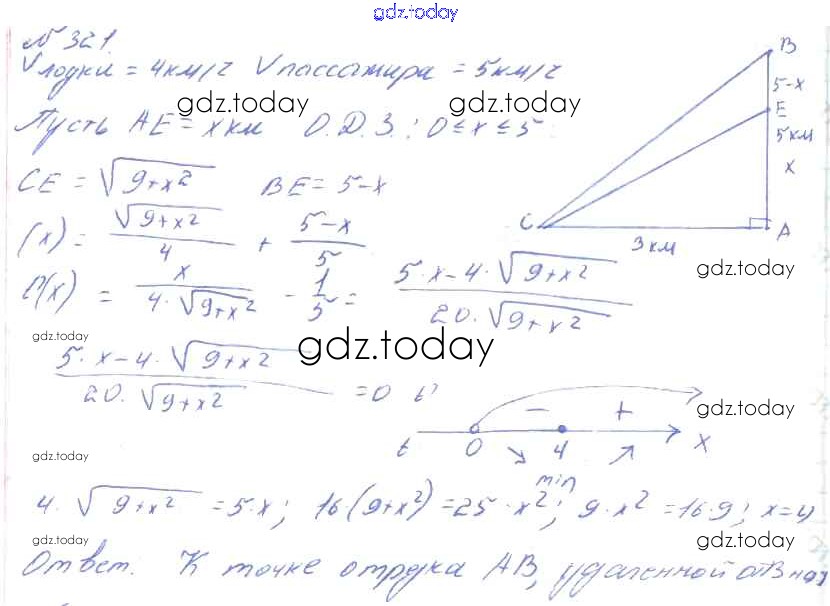 gdz.today
№ 321.
Vлодки = 4км/ч Vпассажира = 5км/ч
gdz.today gdz.today
Пусть AE = x км О.Д.З.: 0 ≤ x ≤ 5
B
5-x
E
5 км
x
C
A
3 км
CE = √9+x² BE = 5-x
(x) = √9+x² / 4 + 5-x / 5
gdz.today
(x) = x / 4·√9+x² - 1/5 = 5·x-4·√9+x² / 20·√9+x²
gdz.today
gdz.today
5·x-4·√9+x² / 20·√9+x² = 0
gdz.today
- +
t 0 4 x
min
gdz.today
4·√9+x² = 5·x; 16(9+x²) = 25·x²; 9·x² = 16·9; x=4
gdz.today
Ответ: К точке отрезка AB, удаленной от B на
gdz.today